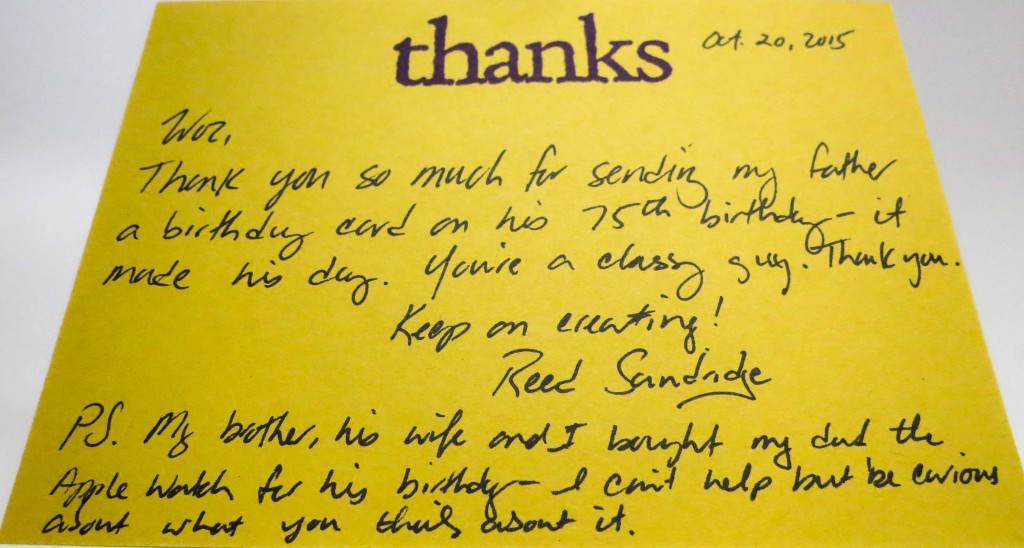 thanks
Oct. 20, 2015
Woz,
Thank you so much for sending my father
a birthday card on his 75th birthday - it
made his day. You're a classy guy. Thank you.
Keep on creating!
Reed Sandridge
PS. My brother, his wife and I bought my dad the
Apple Watch for his birthday - I can't help but be curious
about what you think about it.